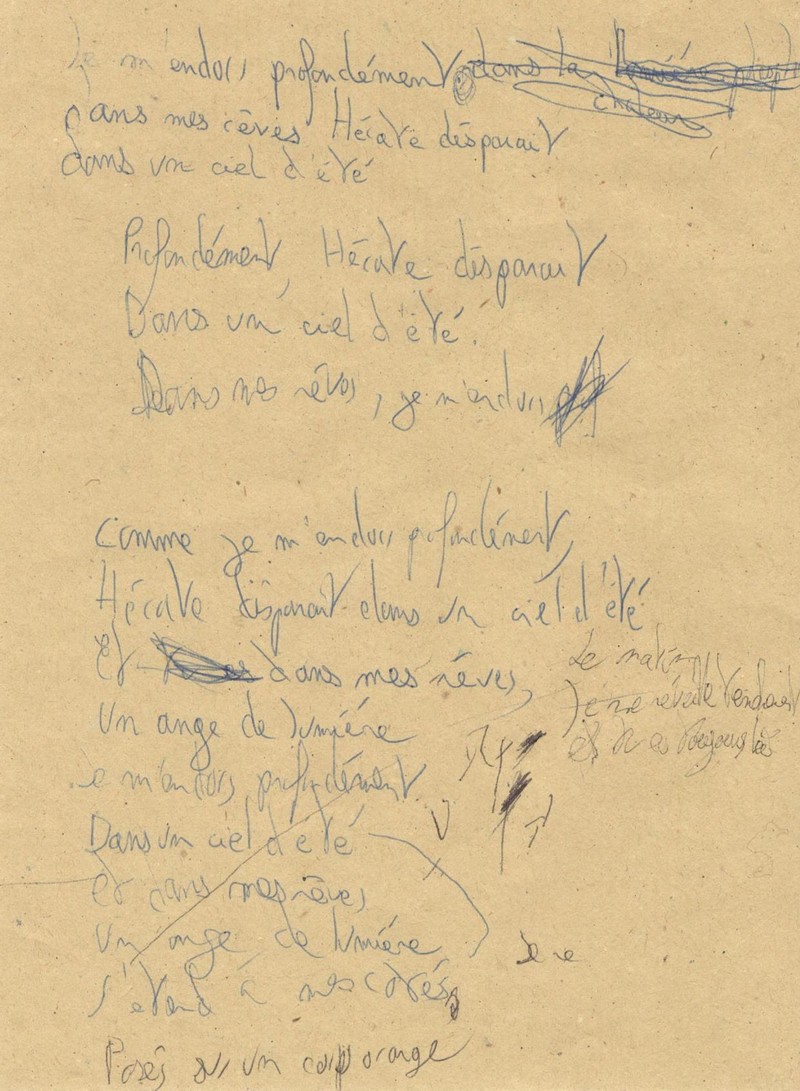 Je m'endors profondément, dans la lumière
chaleur
Dans mes rêves Hécate disparait
dans un ciel d'été
Profondément, Hécate disparait
Dans un ciel d'été.
Dans mes rêves, je m'endors
Comme je m'endors profondément,
Hécate disparait dans un ciel d'été
Et dans mes rêves,
Un ange de lumière
Le matin
Je me réveille
et
Je m'endors profondément
Dans un ciel d'été
et dans mes rêves,
Un ange de lumière
S'étend à mes côtés,
Je me
Posés sur un corp orange